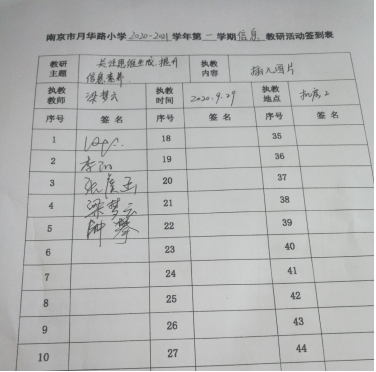 南京市月华路小学2020-2021学年第一学期信息教研活动签到表
教研主题 关注思维生成,提升信息素养 执教内容 插入图片
执教教师 梁梦云 执教时间 2020.9.29 执教地点 机房2
序号 签名 序号 签名 序号 签名
1 18 35
2 19 36
3 20 37
4 梁梦云 21 38
5 22 39
6 23 40
7 24 41
8 25 42
9 26 43
10 27 44